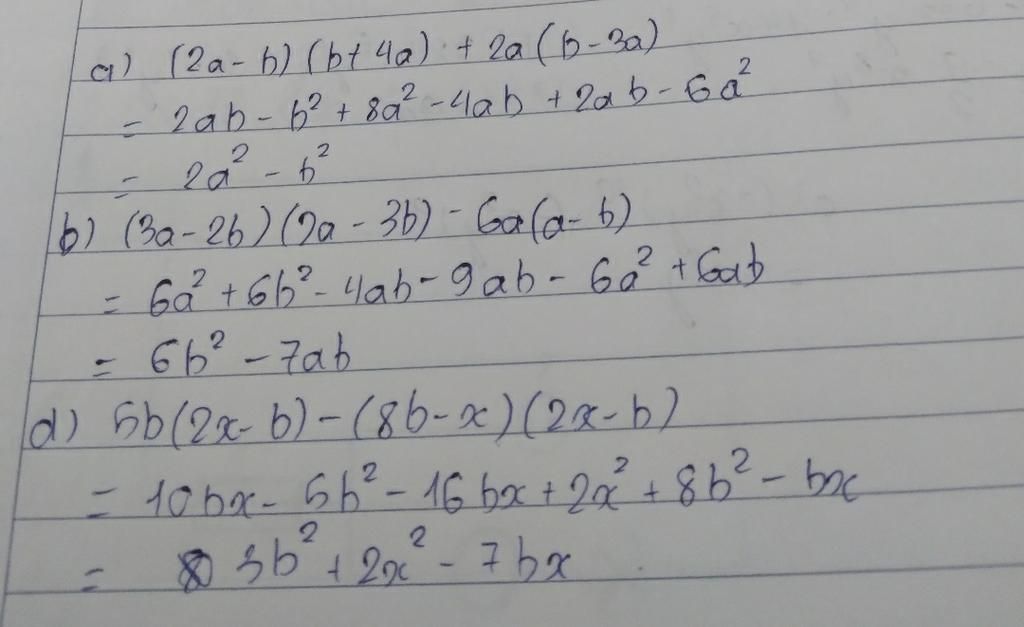 a) (2a-b)(b+4a) + 2a(b-3a)
= 2ab - b² + 8a² - 4ab + 2ab - 6a²
= 2a² - b²
b) (3a-2b)(2a-3b) - 6a(a-b)
= 6a² + 6b² - 4ab - 9ab - 6a² + 6ab
= 6b² - 7ab
d) 5b(2x-b) - (8b-x)(2x-b)
= 10bx - 5b² - 16bx + 2x² + 8b² - bx
= 3b² + 2x² - 7bx